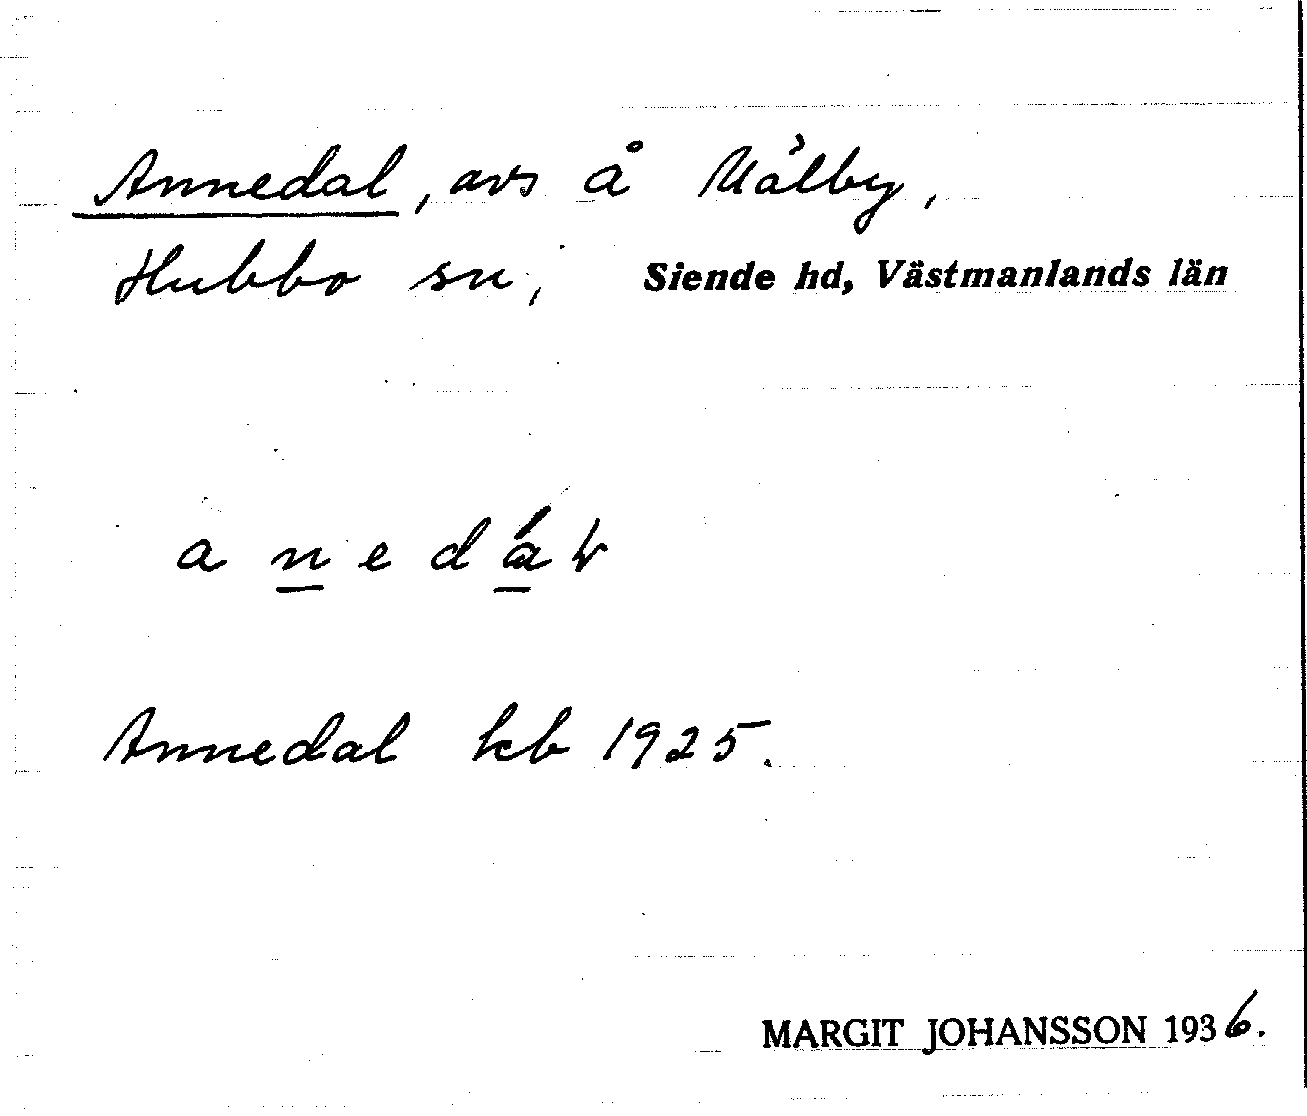 Annedal, avs å Målby,
Hubbo sn, Siende hd, Västmanlands län
Annedal kb 1925.
MARGIT JOHANSSON 1936.